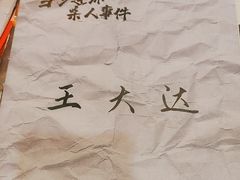 杀人事件
王大达